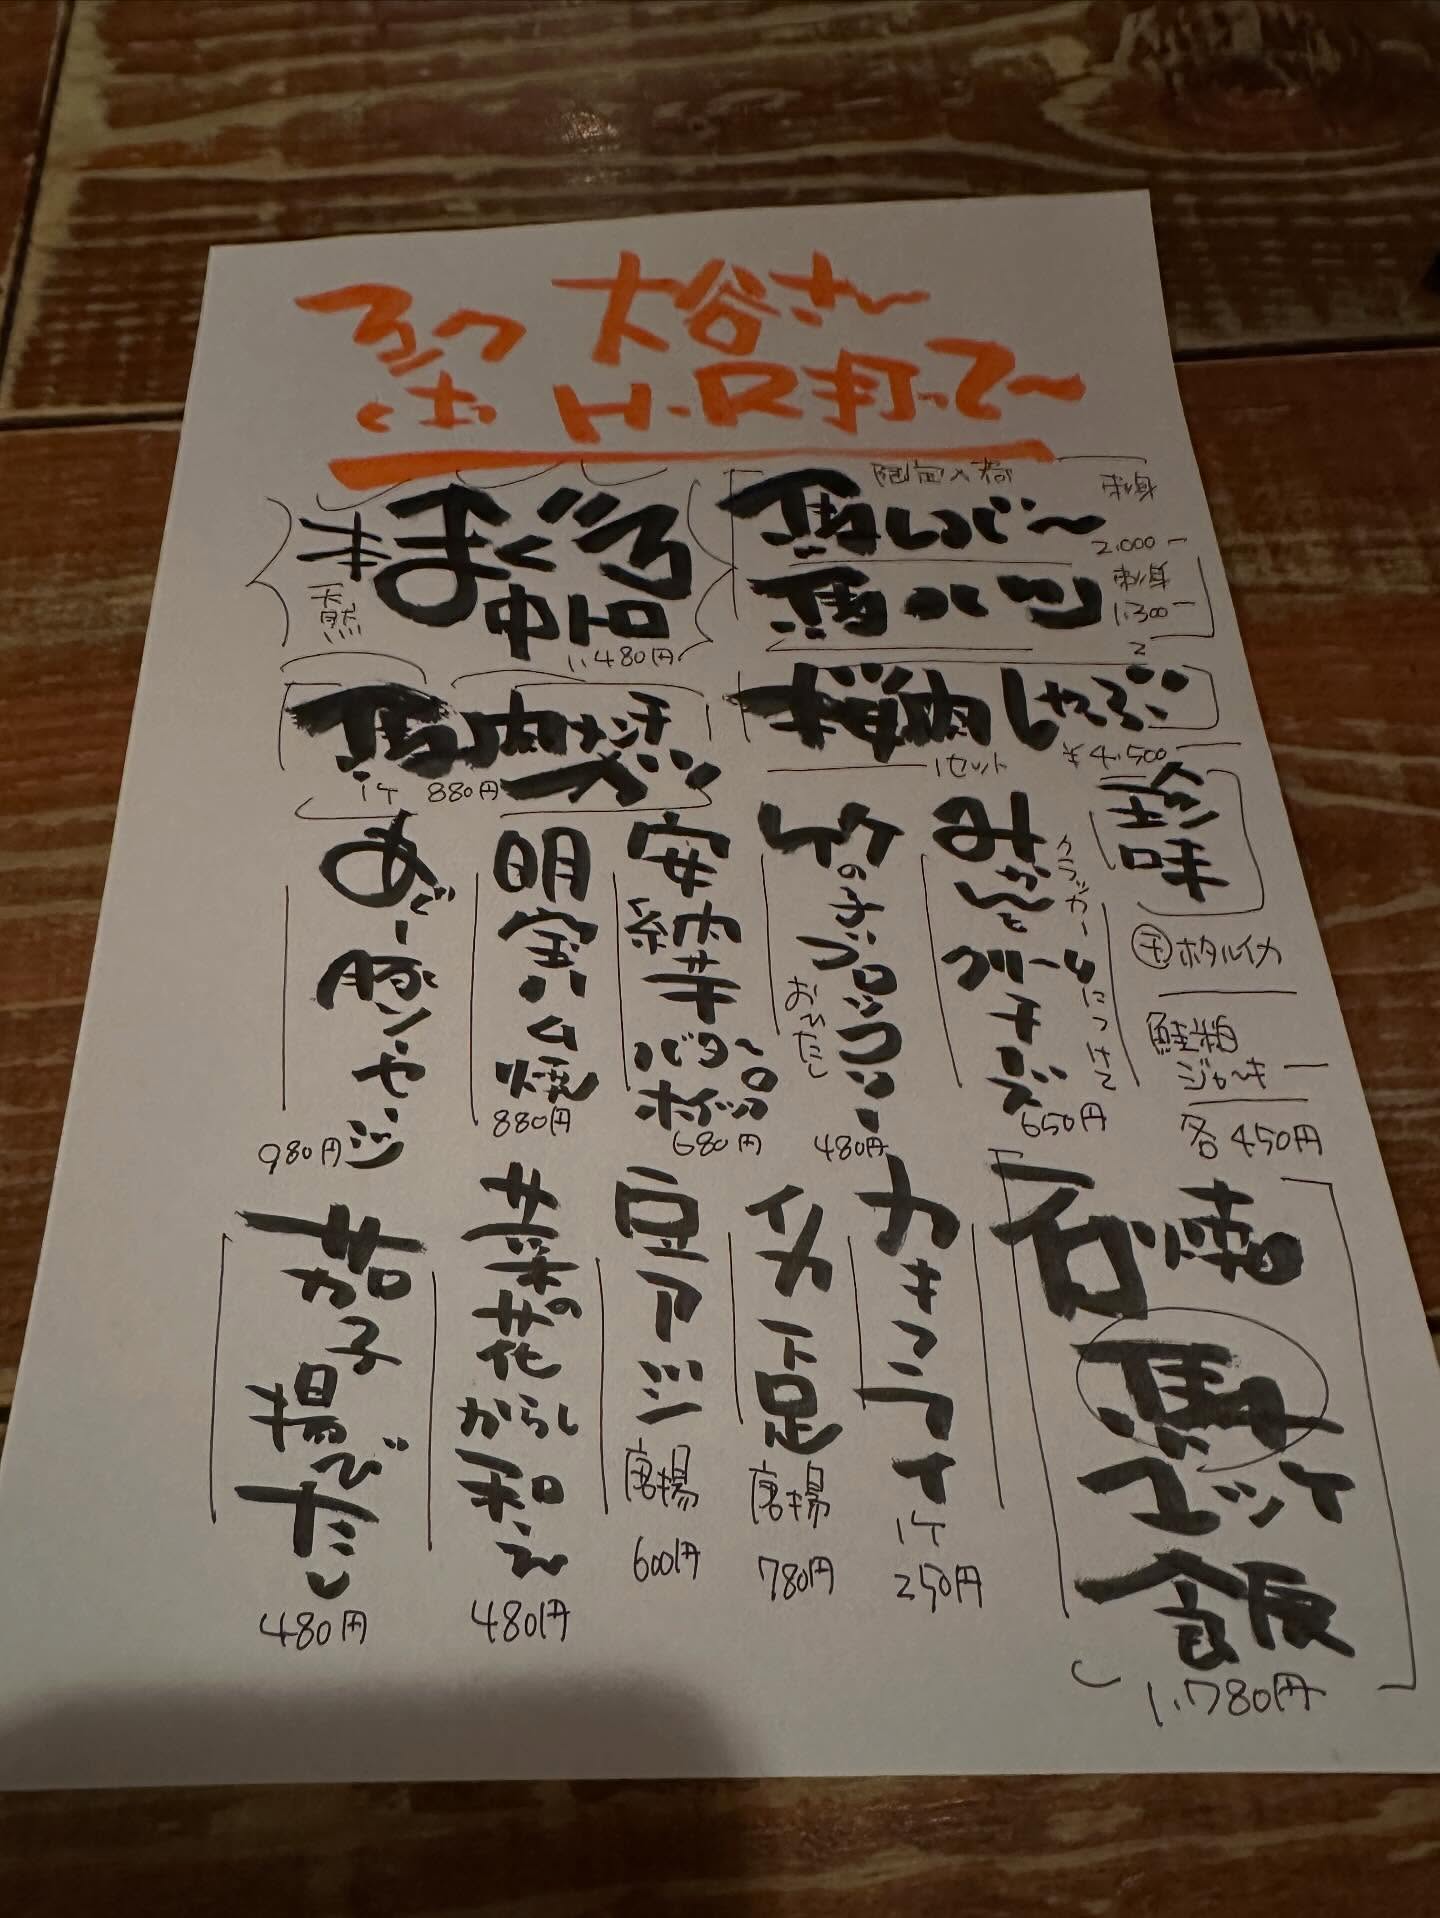 大谷さ〜
H.R打って〜
本まぐろ
天然
中トロ
1,480円
限定入荷
刺身
2,000-
馬ハツ
刺身
1,300-
馬肉メンチカツ
1ケ 880円
桜肉しゃぶ
1セット
¥4,500-
珍味
干ホタルイカ
鮭粕
ジャーキー
各450円
みかんとクリームチーズ
クラッカーにつけて
650円
竹の子ブロッコリー
おひたし
480円
安納芋バターホイップ
680円
明宝ハム焼
880円
あぐー豚ソーセージ
980円
石焼
馬
ユッケ
飯
1,780円
カキフライ
1ケ
250円
イカ下足
唐揚
780円
豆アジ
唐揚
600円
菜の花からし和え
480円
茄子揚びたし
480円